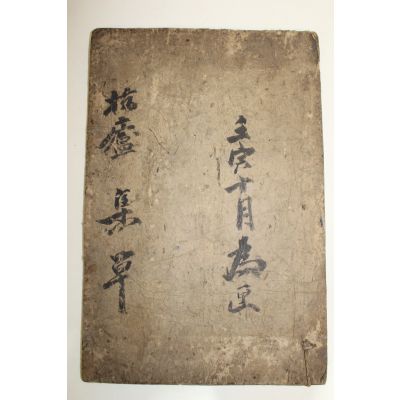 壬寅十月為
廬集草